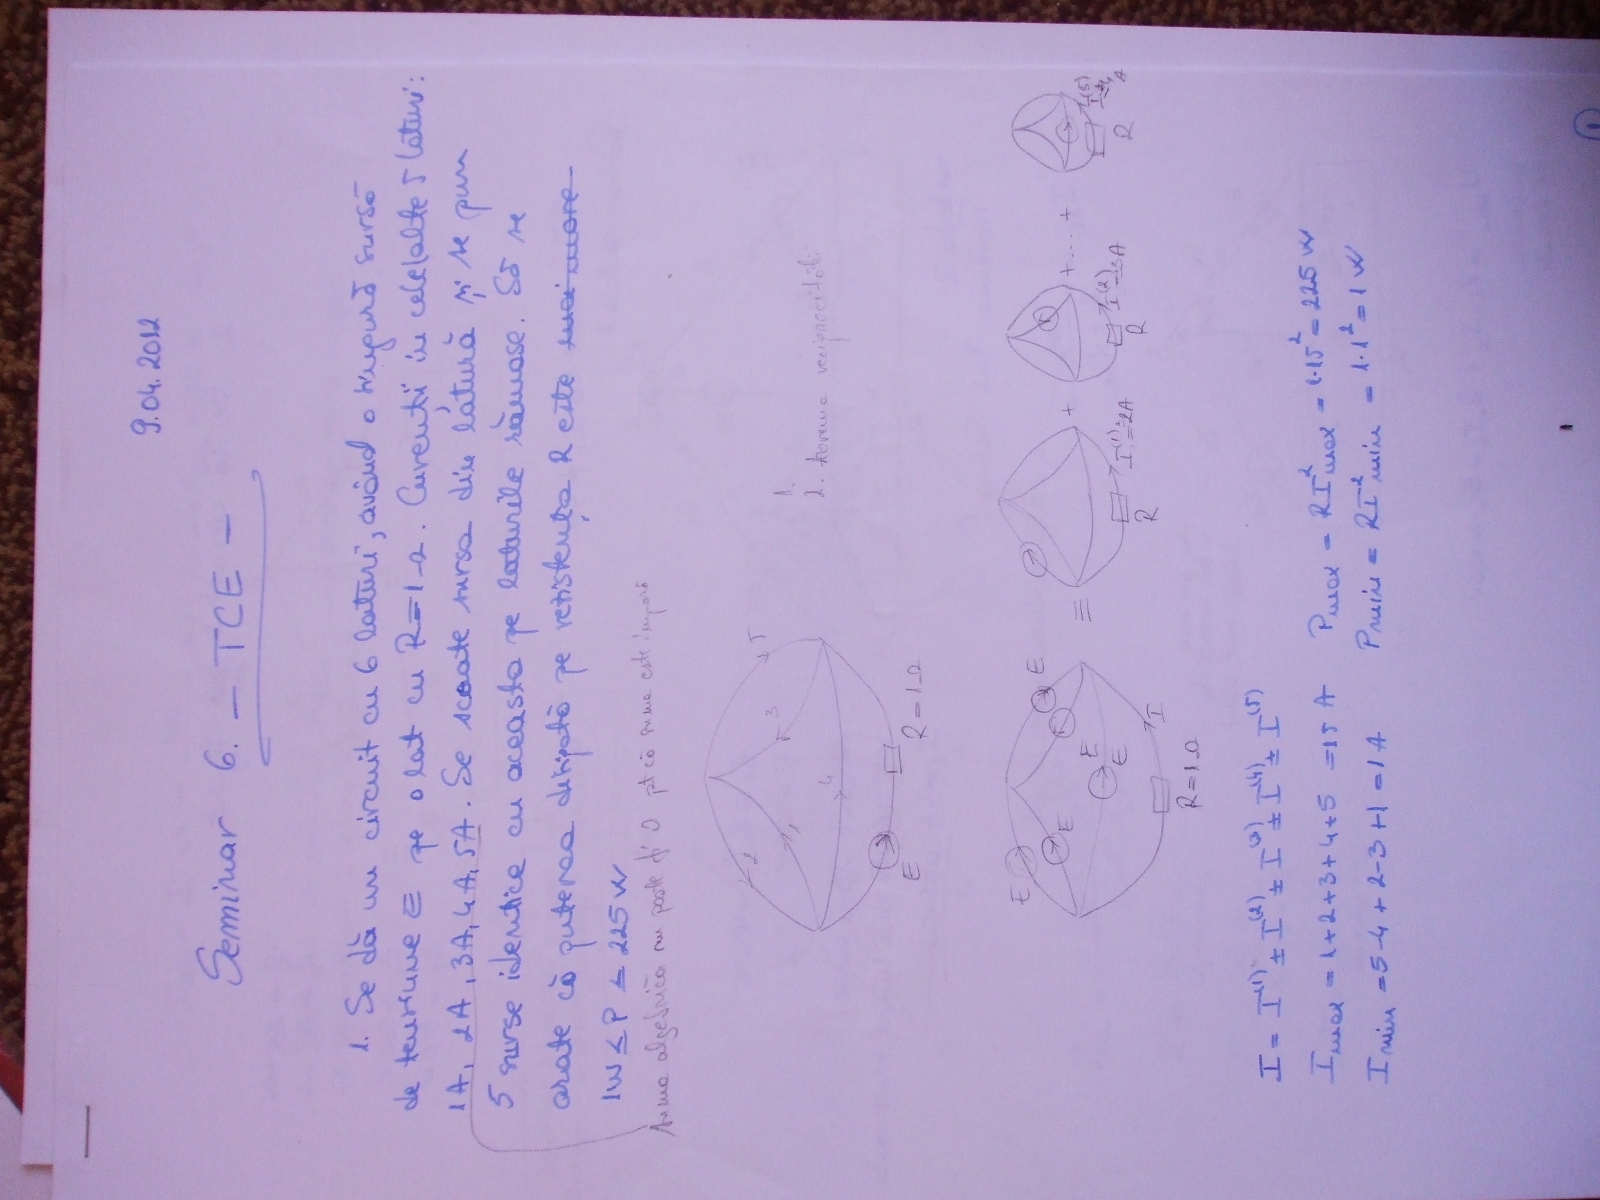 9.04.2012
Seminar 6. - TCE -
1. Se dă un circuit cu 6 laturi, având o singură sursă
de tensiune E pe o lat cu R=1Ω. Curenții in celelalte 5 laturi:
1A, 2A, 3A, 4A, 5A. Se scoate sursa din latură și se pun
5 surse identice cu aceasta pe laturile rămase. Să se
arate că puterea disipată pe rezistența R este mai mare
1W ≤ P ≤ 225W
suma algebrică nu poate fi 0 pt că suma este impară
2 5
1 3
4
E R=1Ω
1.
2. teorema reciprocității
E E
E
E
E
I
R=1Ω
≡ + +...+
I⁽¹⁾=2A
R
I⁽²⁾=3A
R
I⁽⁵⁾=4A
R
I = I⁽¹⁾ ± I⁽²⁾ ± I⁽³⁾ ± I⁽⁴⁾ ± I⁽⁵⁾
Imax = 1+2+3+4+5 =15 A Pmax = RI²max = 1·15² = 225 W
Imin = 5-4+2-3+1 = 1A Pmin = RI²min = 1·1² = 1 W
1